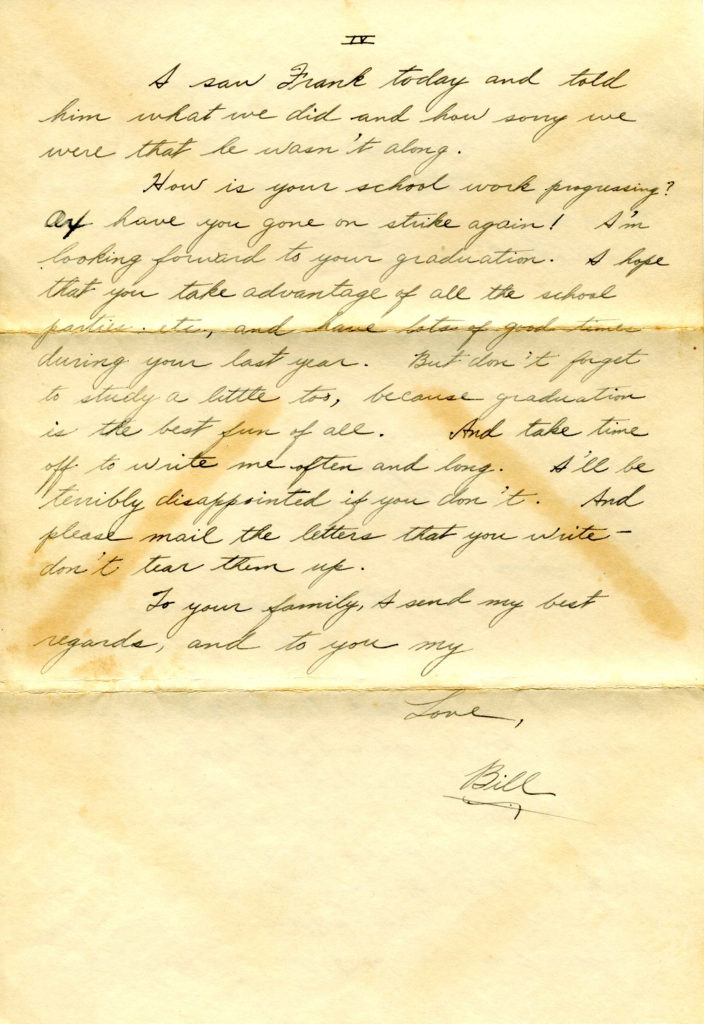 IV
I saw Frank today and told
him what we did and how sorry we
were that he wasn't along.
How is your school work progressing?
Or have you gone on strike again! I'm
looking forward to your graduation. I hope
that you take advantage of all the school
parties etc., and have lots of good times
during your last year. But don't forget
to study a little too, because graduation
is the best fun of all. And take time
off to write me often and long. I'll be
terribly disappointed if you don't. And
please mail the letters that you write—
don't tear them up.
To your family, I send my best
regards, and to you my
Love,
Bill